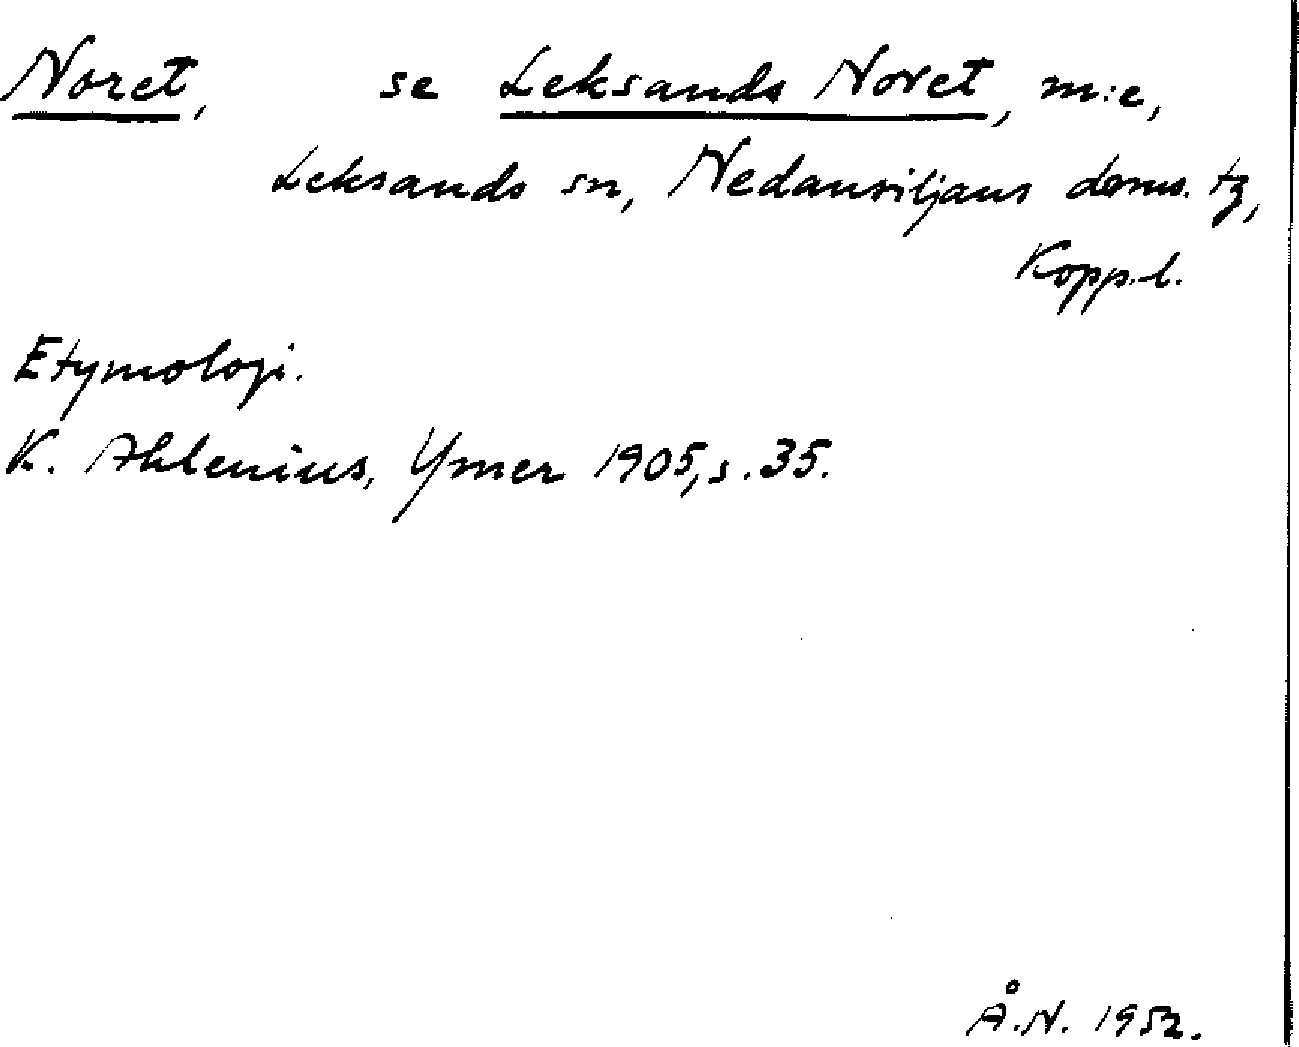 Noret, se Leksands Noret, m:e,
Leksands sn, Nedansiljans doms. tg,
Kopp.l.
Etymologi.
K. Ahlenius, Ymer 1905, s. 35.
Å.N. 1952.